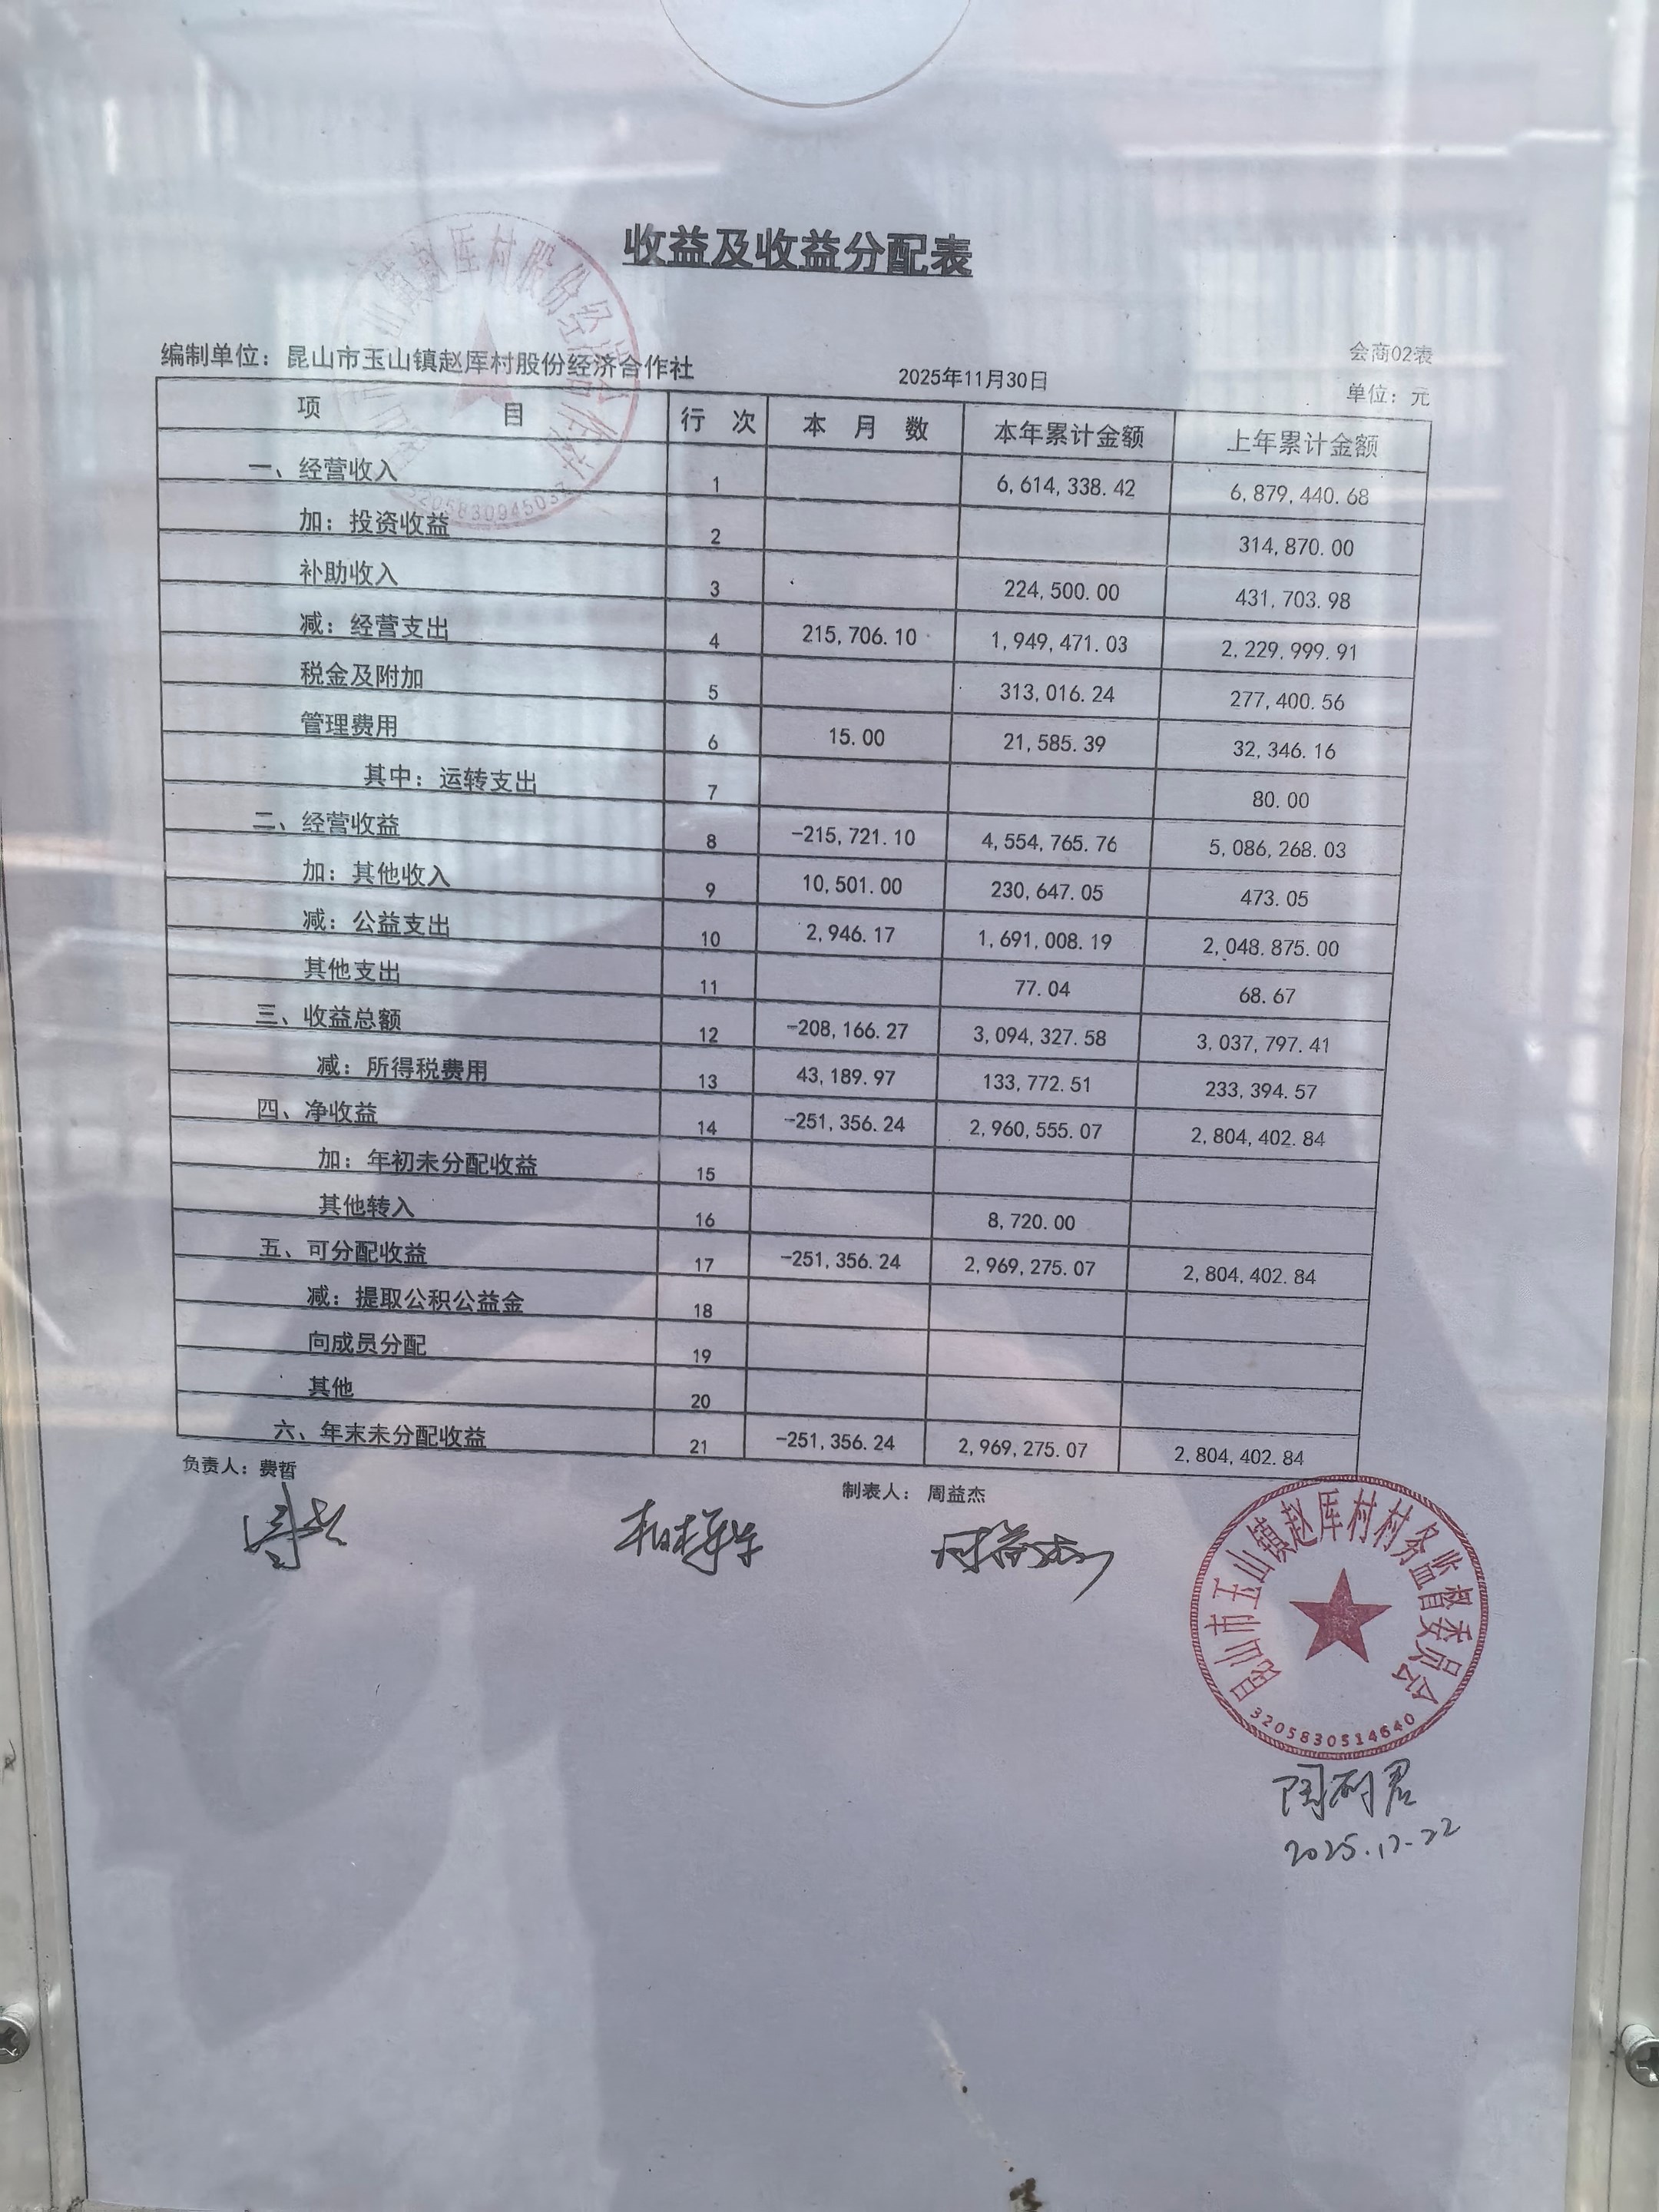 收益及收益分配表
会商02表
编制单位：昆山市玉山镇赵厍村股份经济合作社 2025年11月30日 单位：元
项 目 行 次 本 月 数 本年累计金额 上年累计金额
一、经营收入 1 6,614,338.42 6,879,440.68
加：投资收益 2 314,870.00
补助收入 3 224,500.00 431,703.98
减：经营支出 4 215,706.10 1,949,471.03 2,229,999.91
税金及附加 5 313,016.24 277,400.56
管理费用 6 15.00 21,585.39 32,346.16
其中：运转支出 7 80.00
二、经营收益 8 -215,721.10 4,554,765.76 5,086,268.03
加：其他收入 9 10,501.00 230,647.05 473.05
减：公益支出 10 2,946.17 1,691,008.19 2,048,875.00
其他支出 11 77.04 68.67
三、收益总额 12 -208,166.27 3,094,327.58 3,037,797.41
减：所得税费用 13 43,189.97 133,772.51 233,394.57
四、净收益 14 -251,356.24 2,960,555.07 2,804,402.84
加：年初未分配收益 15
其他转入 16 8,720.00
五、可分配收益 17 -251,356.24 2,969,275.07 2,804,402.84
减：提取公积公益金 18
向成员分配 19
其他 20
六、年末未分配收益 21 -251,356.24 2,969,275.07 2,804,402.84
负责人：费哲 制表人：周益杰
周益杰
昆山市玉山镇赵厍村村务监督委员会
3205830514640
2025.12-22